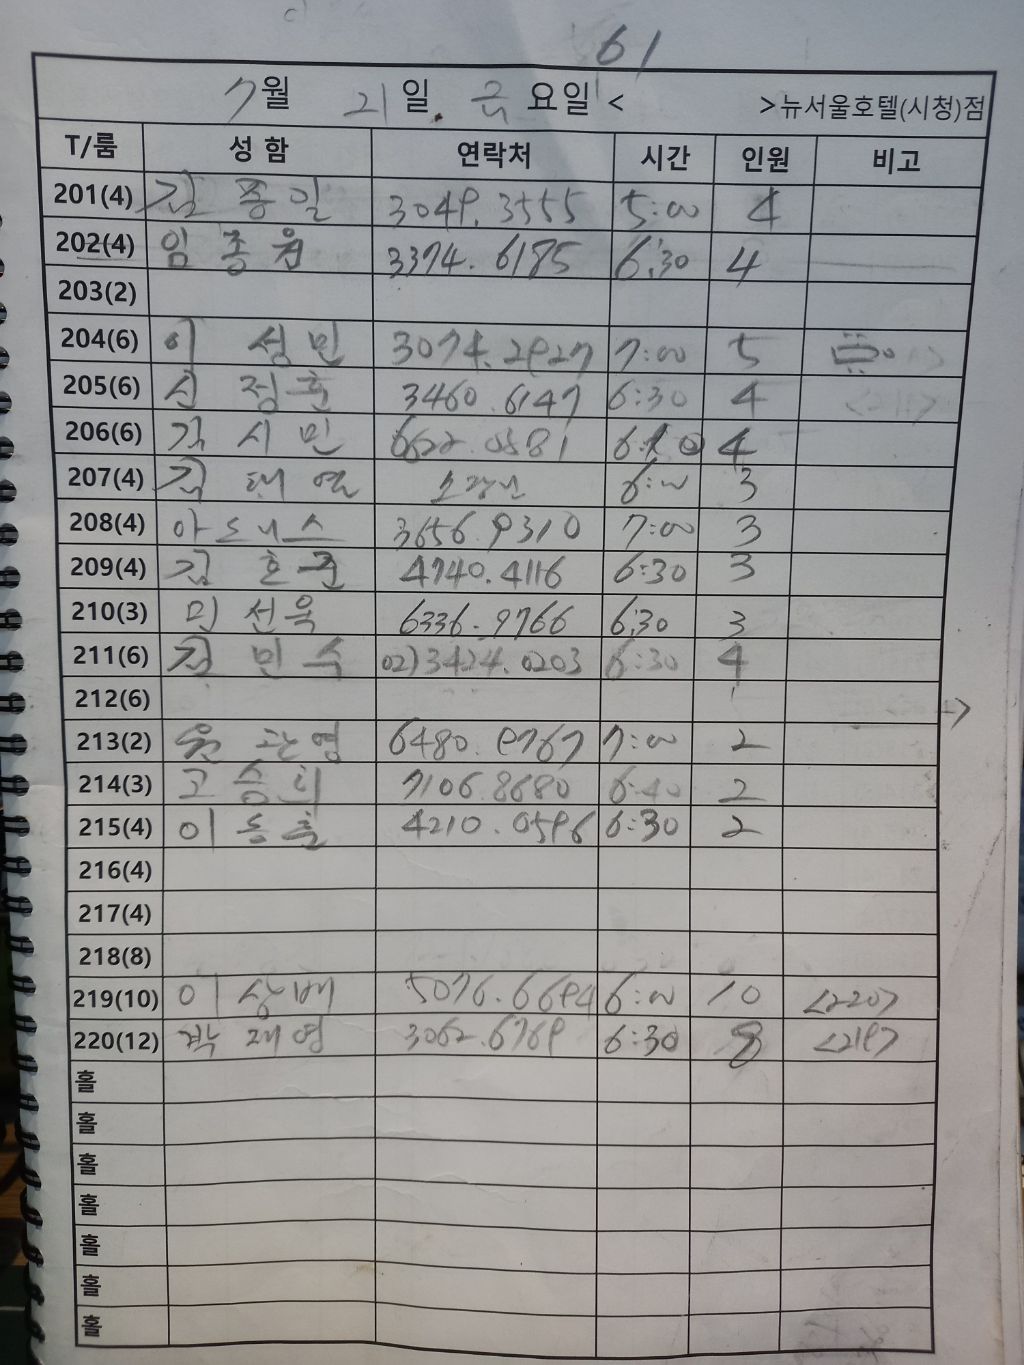 61
7월 21일. 금요일 < >뉴서울호텔(시청)점
T/룸 성 함 연락처 시간 인원 비고
201(4) 김 종 일 3049. 3555 5:00 4
202(4) 임 종 원 3374. 6185 6:30 4
203(2)
204(6) 이 성 민 3074. 2927 7:00 5
205(6) 신 정 훈 3460. 6147 6:30 4
206(6) 시 민 6622. 0581 4
207(4) 김 태 열 6:00 3
208(4) 아도니스 3656. 9310 7:00 3
209(4) 김 흔 준 4740. 4116 6:30 3
210(3) 민 선 욱 6336. 9766 6:30 3
211(6) 민 수 02)3424. 0203 6:30 4
212(6)
213(2) 관 영 6480. 9767 7:00 2
214(3) 고 승 희 7106. 8680 6:40 2
215(4) 이 동 훈 4210. 0596 6:30 2
216(4)
217(4)
218(8)
219(10) 이 상 배 5076. 6694 6:00 10 <220>
220(12) 박 재 영 3062. 6769 6:30 8 <219>
홀
홀
홀
홀
홀
홀
홀